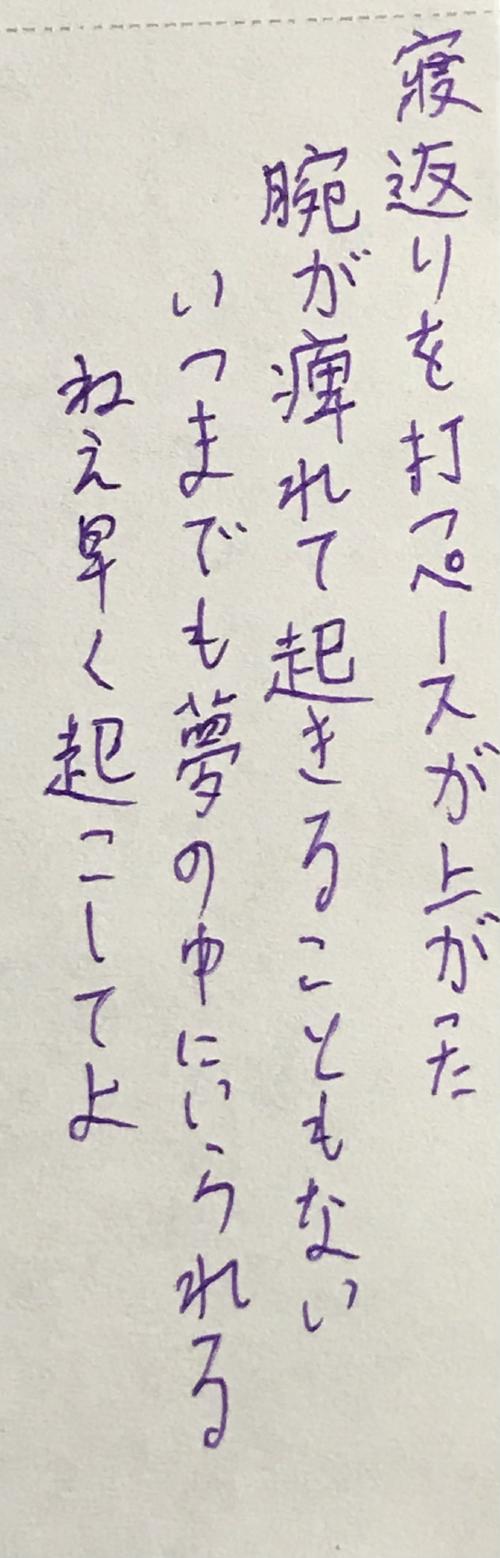 寝返りを打つペースが上がった
腕が痺れて起きることもない
いつまでも夢の中にいられる
ねえ早く起こしてよ